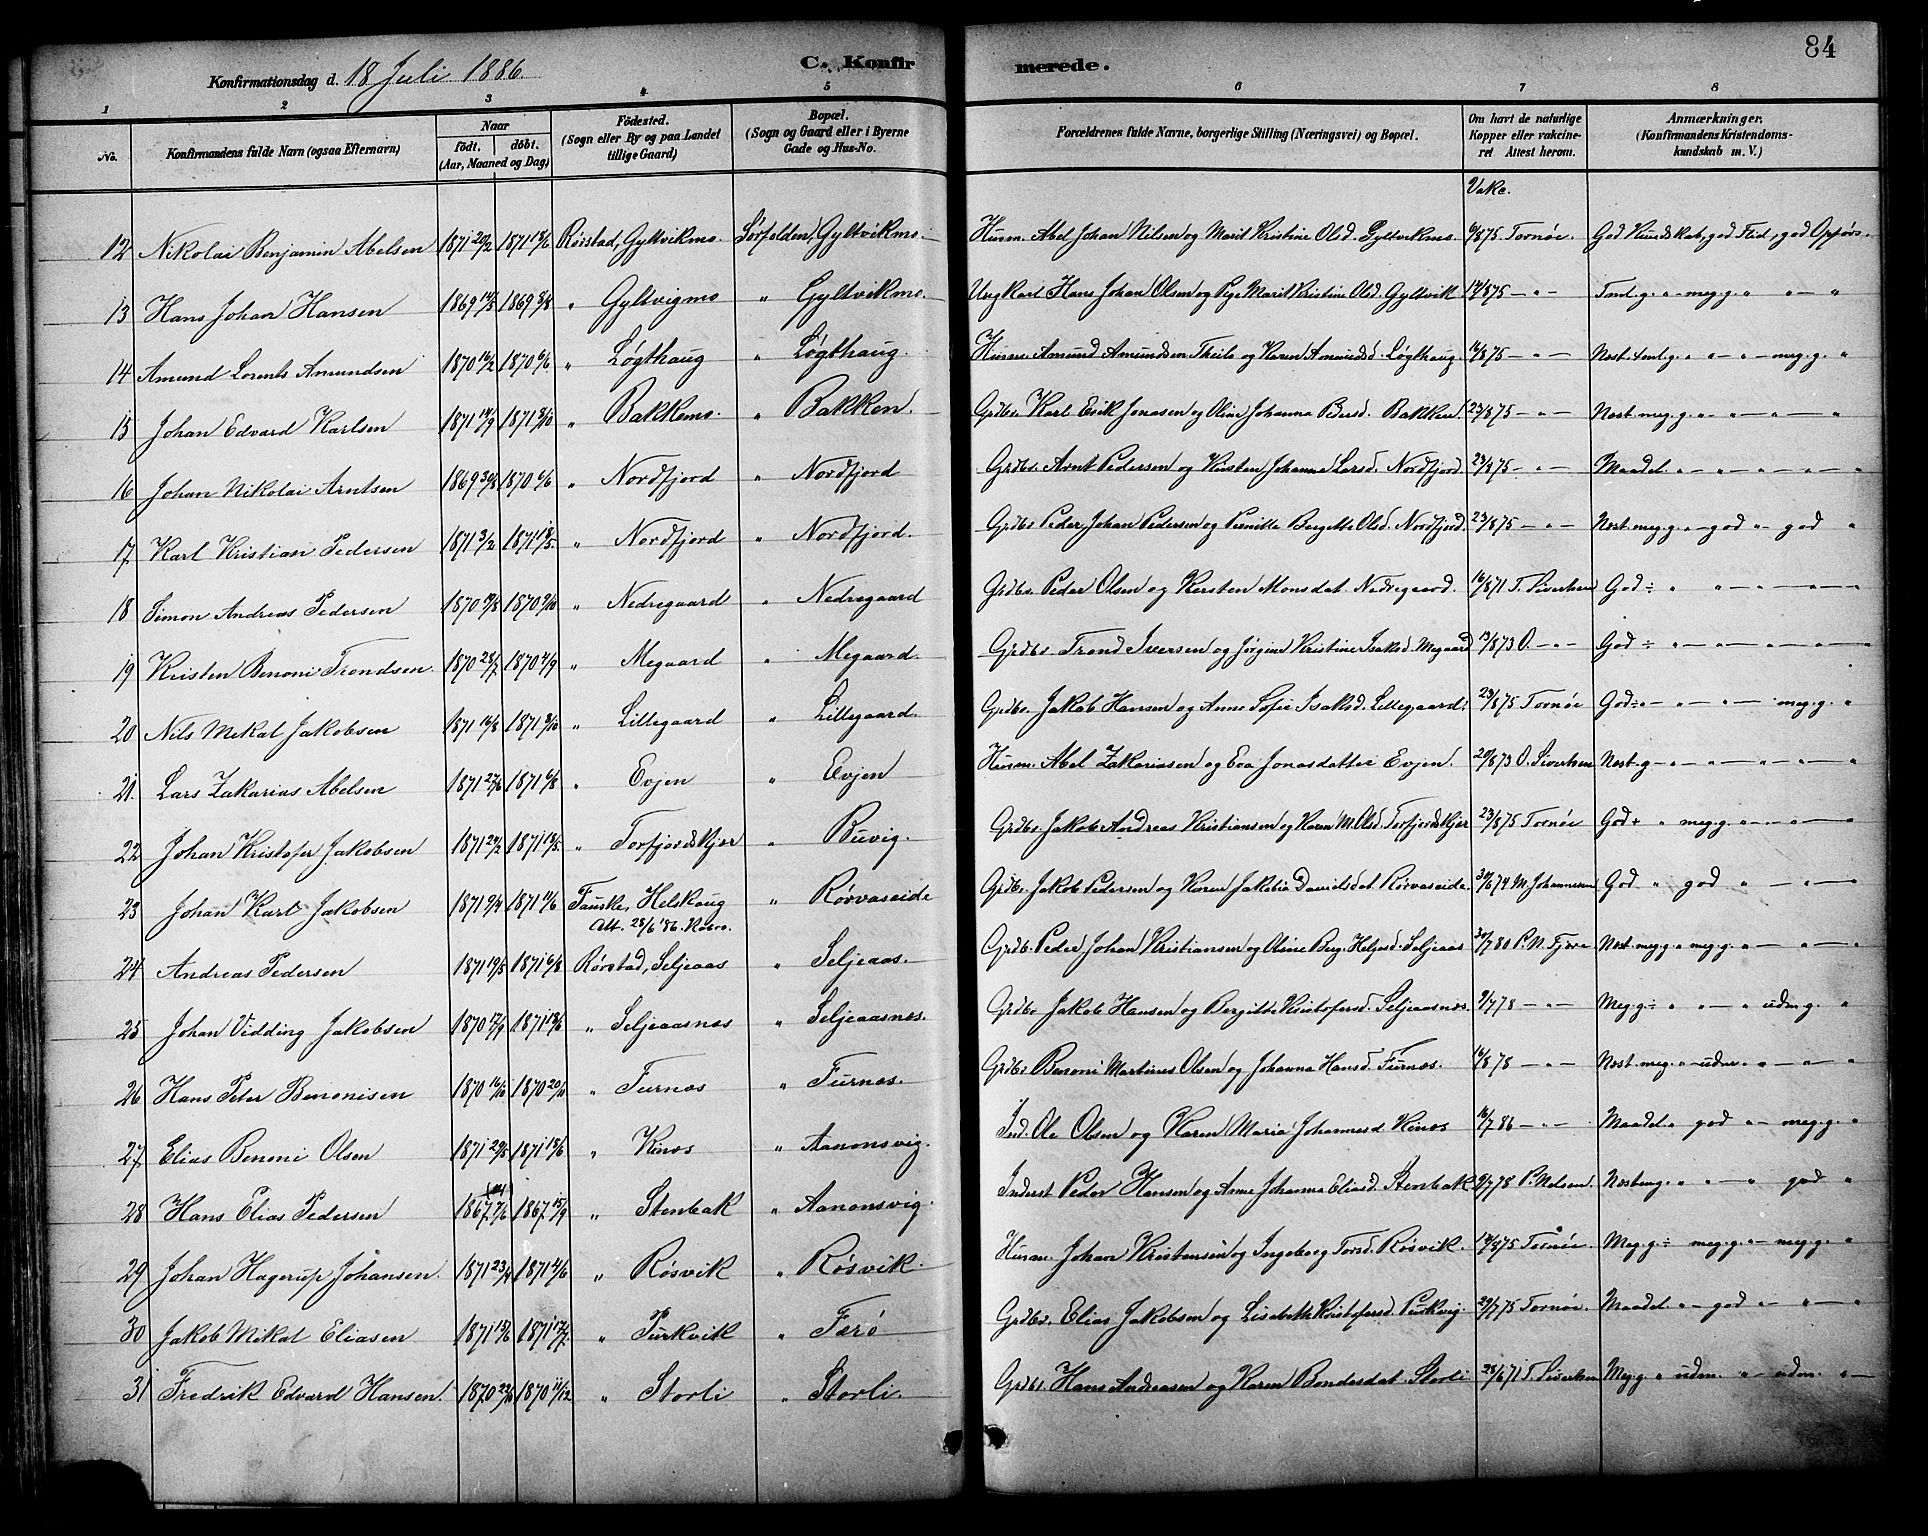 84
Konfirmationsdag d. 18 Juli 1886
C. Konfirmerede.
1 2 3 4 5 6 7 8
No.
Konfirmandens fulde Navn (ogsaa Efternavn)
Naar
født. døbt.
(Aar, Maaned og Dag)
Fødested.
(Sogn eller By og paa Landet
tillige Gaard)
Bopæl.
(Sogn og Gaard eller i Byerne
Gade og Hus-No.
Forældrenes fulde Navne, borgerlige Stilling (Næringsvei) og Bopæl.
Om havt de naturlige
Kopper eller vakcine-
ret Attest herom.
Anmærkninger,
(Konfirmandens Kristendoms-
kundskab m. V.)
Vakc.
12 Nikolai Benjamin Abelsen 1871 20/2 1871 18/6 Rørstad, Gyltvikmo. Sørfolden, Gyltvikmo. Husm. Abel Johan Nilsen og Marit Kristine Olsd. Gyltvikmo. 6/8 75 Tornøe. God Kundskab, god Flid, god Opførs.
13 Hans Johan Hansen 1869 1869 8/8 " Gyltvigmo " Gyltvikmo. Ungkarl Hans Johan Olsen og Pige Marit Kristine Olsd. Gyltvik 14/8 75 — " — Tml. g. " " meg. g. " " — "
14 Amund Lorents Amundsen 1870 16/2 1870 6/6 " Løgthaug " Løgthaug. Husm. Amund Amundsen Theile og Karen Amundsd. Løgthaug. 16/8 75 — " — Næst. tml. g. " " — " — meg. g. "
15 Johan Edvard Karlsen 1871 14/9 1871 8/10 " Bakkemo. " Bakken. Grdbr. Karl Erik Jonasen og Oline Johanna Bersd. Bakken. 23/8 75 — " — Næst. meg. g. " " — " — " — "
16 Johan Nikolai Arntsen 1869 30/8 1870 6/6 " Nordfjord " Nordfjord Grdbr. Arnt Pedersen og Kirsten Johanna Larsd. Nordfjord 23/8 75 — " — Maadel. " — " — " — " — "
17 Karl Kristian Pedersen 1871 3/2 1871 18/5 " Nordfjord " Nordfjord. Grdbr. Peder Johan Pedersen og Pernille Bergitte Olsd. Nordfjord. 23/8 75 — " — Næst. meg. g. " — god " — god "
18 Simon Andreas Pedersen 1870 1870 9/10 " Nedregaard " Nedregaard Grdbr. Peder Olsen og Kersten Monsdat. Nedregaard. 16/8 71 T. Siverhen God ÷ " " — " — " — "
19 Kristen Benoni Trondsen 1870 28/7 1870 4/9 " Megaard " Megaard. Grdbr. Trond Iversen og Jørgine Kristine Isaksd. Megaard 13/8 73 O. — " — God ÷ " — " — " — " — "
20 Nils Mikal Jakobsen 1871 16/8 1871 8/10 " Lillegaard " Lillegaard. Grdbr. Jakob Hansen og Anne Sofie Isaksd. Lillegaard. 23/8 75 Tornøe God ÷ " — " — " — meg. g. "
21 Lars Zakarias Abelsen 1871 27/6 1871 6/8 " Evjen " Evjen Husm. Abel Zakariasen og Eva Jonasdatter Evjen. 20/8 73 O. Siverhen Næst. g — " — " — " — " — "
22 Johan Kristofer Jakobsen 1871 27/2 1871 18/5. " Torfjordskjær " Buvig. Grdbr. Jakob Andreas Kristiansen og Karen M. Olsd. Torfjordskjær 23/8 75 Tornøe God + " meg. g. " — " — " — "
23 Johan Karl Jakobsen 1871 9/4 1871 11/6 Fauske, Helskaug " Rørvaseide Grdbr. Jakob Pedersen og Karen Jakobia Davidsdat. Rørvaseide 30/6 74 M. Johannesen God " god " — " — "
Att. 28/6 '86.
24 Andreas Pedersen 1871 19/5 1871 6/8 Rørstad, Seljeaas " Seljeaas. Grdbr. Peder Johan Kristiansen og Oline Berg. Helgesd. Seljeaas 30/7 80 P. N. Fjære Næst. meg. g " meg. g. " — " — " — "
25 Johan Vidding Jakobsen 1870 17/9 1871 18/6 " Seljeaasnæs " Seljeaasnæs. Grdbr. Jakob Hansen og Bergitte Kristofersd. Seljeaasnæs. 9/7 78 — " — Meg. g ÷ " " — " udm. g. "
26 Hans Peter Benonisen 1870 16/10 1870 20/11 " Furnæs " Furnæs. Grdbr. Benoni Martinus Olsen og Johanna Hansd. Furnæs. 16/8 78 — " — Næst. meg. " — udm. " — " — " — "
27 Elias Benoni Olsen 1871 29/5 1871 18/6 " Kines " Aanonsvig. Ind. Ole Olsen og Karen Maria Johannesd. Kines 16/7 86 — " — Maadel. " god " — meg. g. "
28 Hans Elias Pedersen 1867 7/6 1867 15/9 " Stenbak " Aanonsvig. Inderst Peder Hansen og Anne Johanna Eliasd. Stenbak 9/7 78 P. Nelsen. Næst. meg. " " — " god "
29 Johan Hagerup Johansen. 1871 23/4 1871 4/6 " Røsvik " Røsvik. Husm. Johan Kristensen og Ingeborg Torsd. Røsvik. 14/8 75 Tornøe. Meg. g. ÷ meg. g. " — meg. g. "
30 Jakob Mikal Eliasen 1871 15/6 1871 17/7. " Purkvik " Færø Grdbr. Elias Jakobsen og Lisabeth Kristofersd. Purkvig. 29/7 75 Tornøe. Maadel. " — god — " — " — "
31 Fredrik Edvard Hansen. 1870 22/10 1870 11/12 " Storli " Storli Grdbr. Hans Andreasen og Karen Bondesdat. Storli 28/6 71 T. Siverhen Meg. g " udm. " — udm. " —